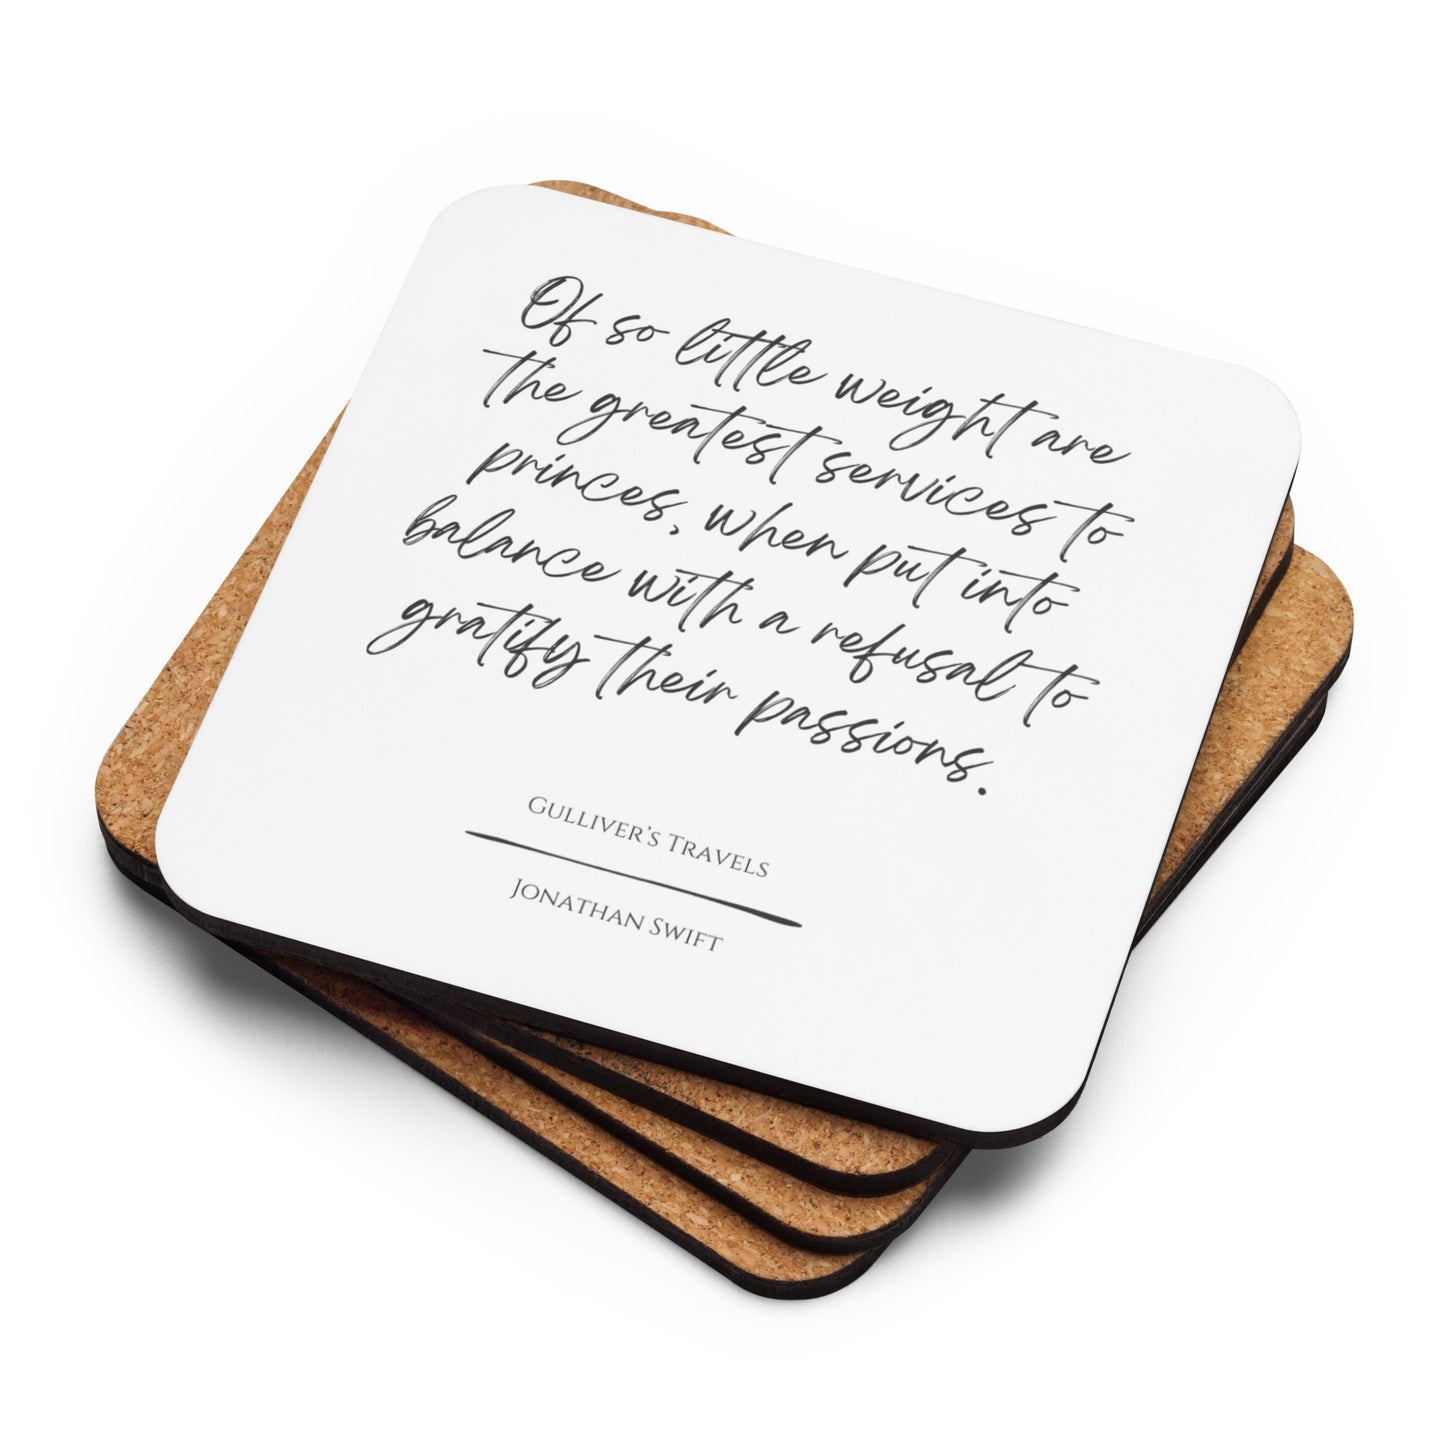 Of so little weight are
the greatest services to
princes, when put into
balance with a refusal to
gratify their passions.
Gulliver's Travels
Jonathan Swift